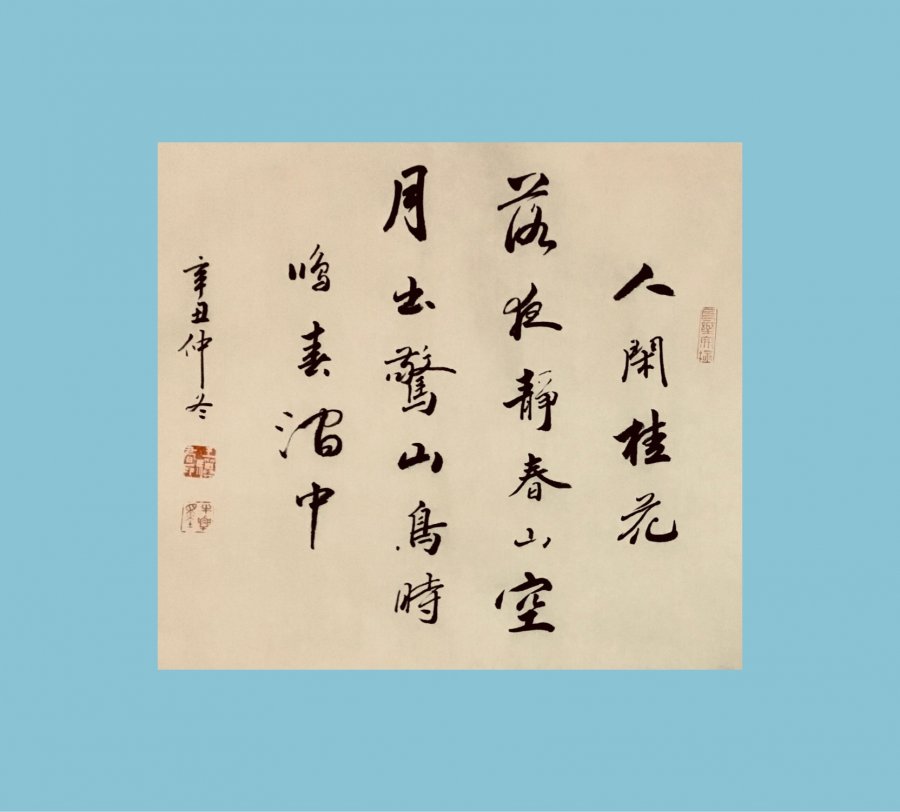 人閑桂花
落夜靜春山空
月出驚山鳥時
鳴春澗中
辛丑仲冬